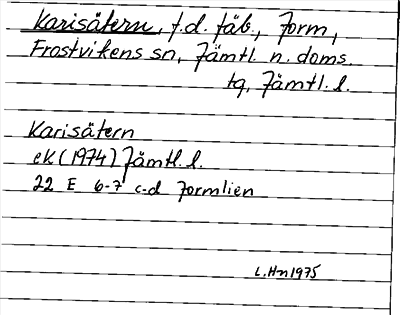 Karisätern, f.d. fäb., Jorm,
Frostvikens sn, Jämtl. n. doms.
tg, Jämtl. l.
Karisätern
eK (1974) Jämtl. l.
22 E 6-7 c-d Jormlien
L.Hn 1975